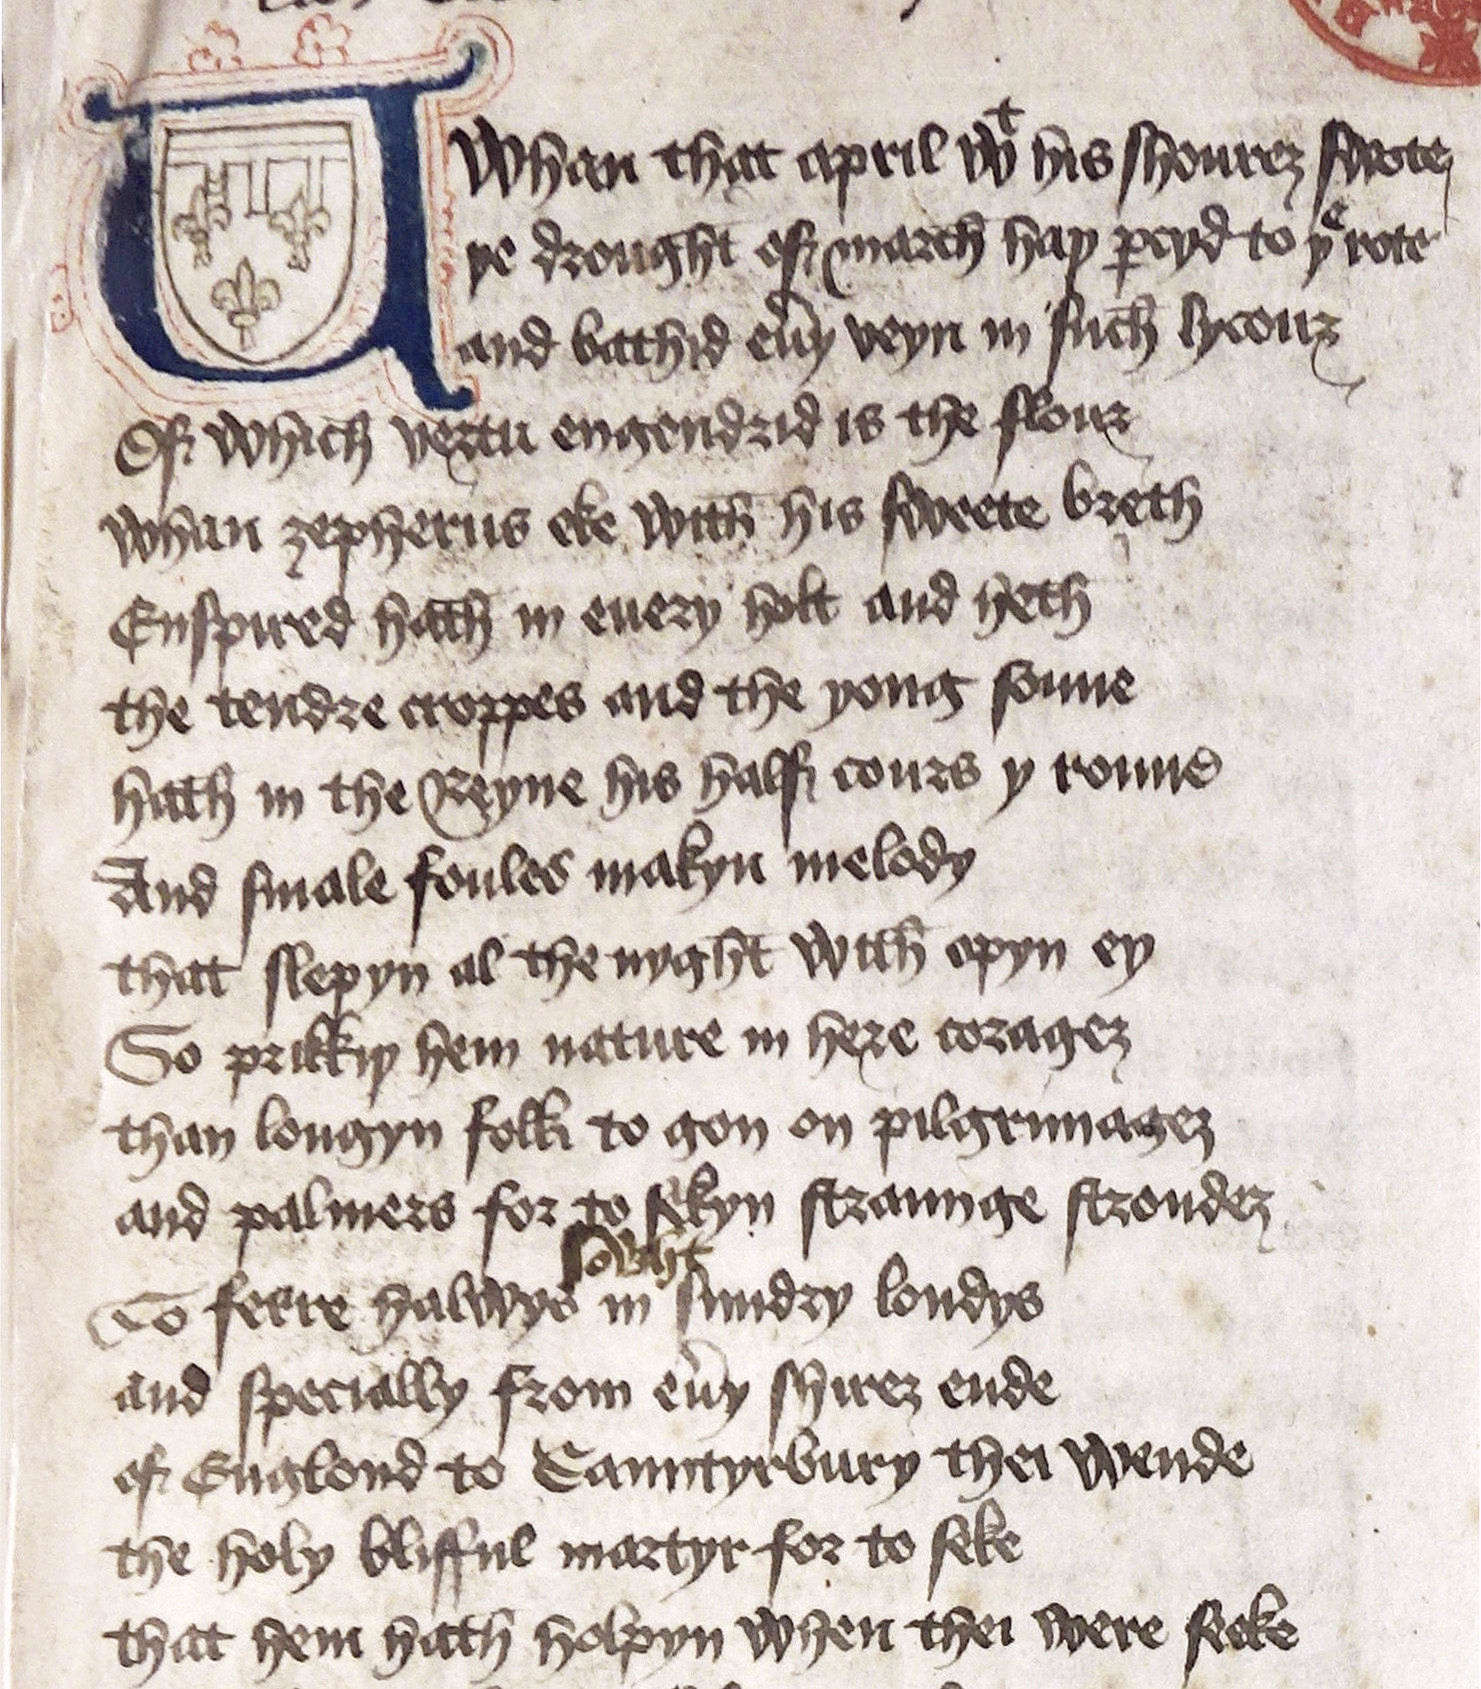 Whan that april wᵗ his shourez swote
ye drought of march hay pcyd to yᵉ rote
and bathid eu'y veyn in such lycour
Of which vertu engendrid is the flour
Whan zepherus eke with his sweete breth
Enspired hath in euery holt and heth
the tendre croppes and the yong sonne
hath in the Reyne his half cours y ronne
And smale foules makyn melody
that slepyn al the nyght with opyn ey
So prikkiy hem nature in here coragez
than longyn folk to gon on pilgrimagez
and palmers for to sekyn straunge strondez
sowht
To ferre halwys in sundry londys
and specially from eu'y shirez ende
of Englond to Cauntyrbury thei wende
the holy blisful martyr for to seke
that hem hath holpyn when thei were seeke